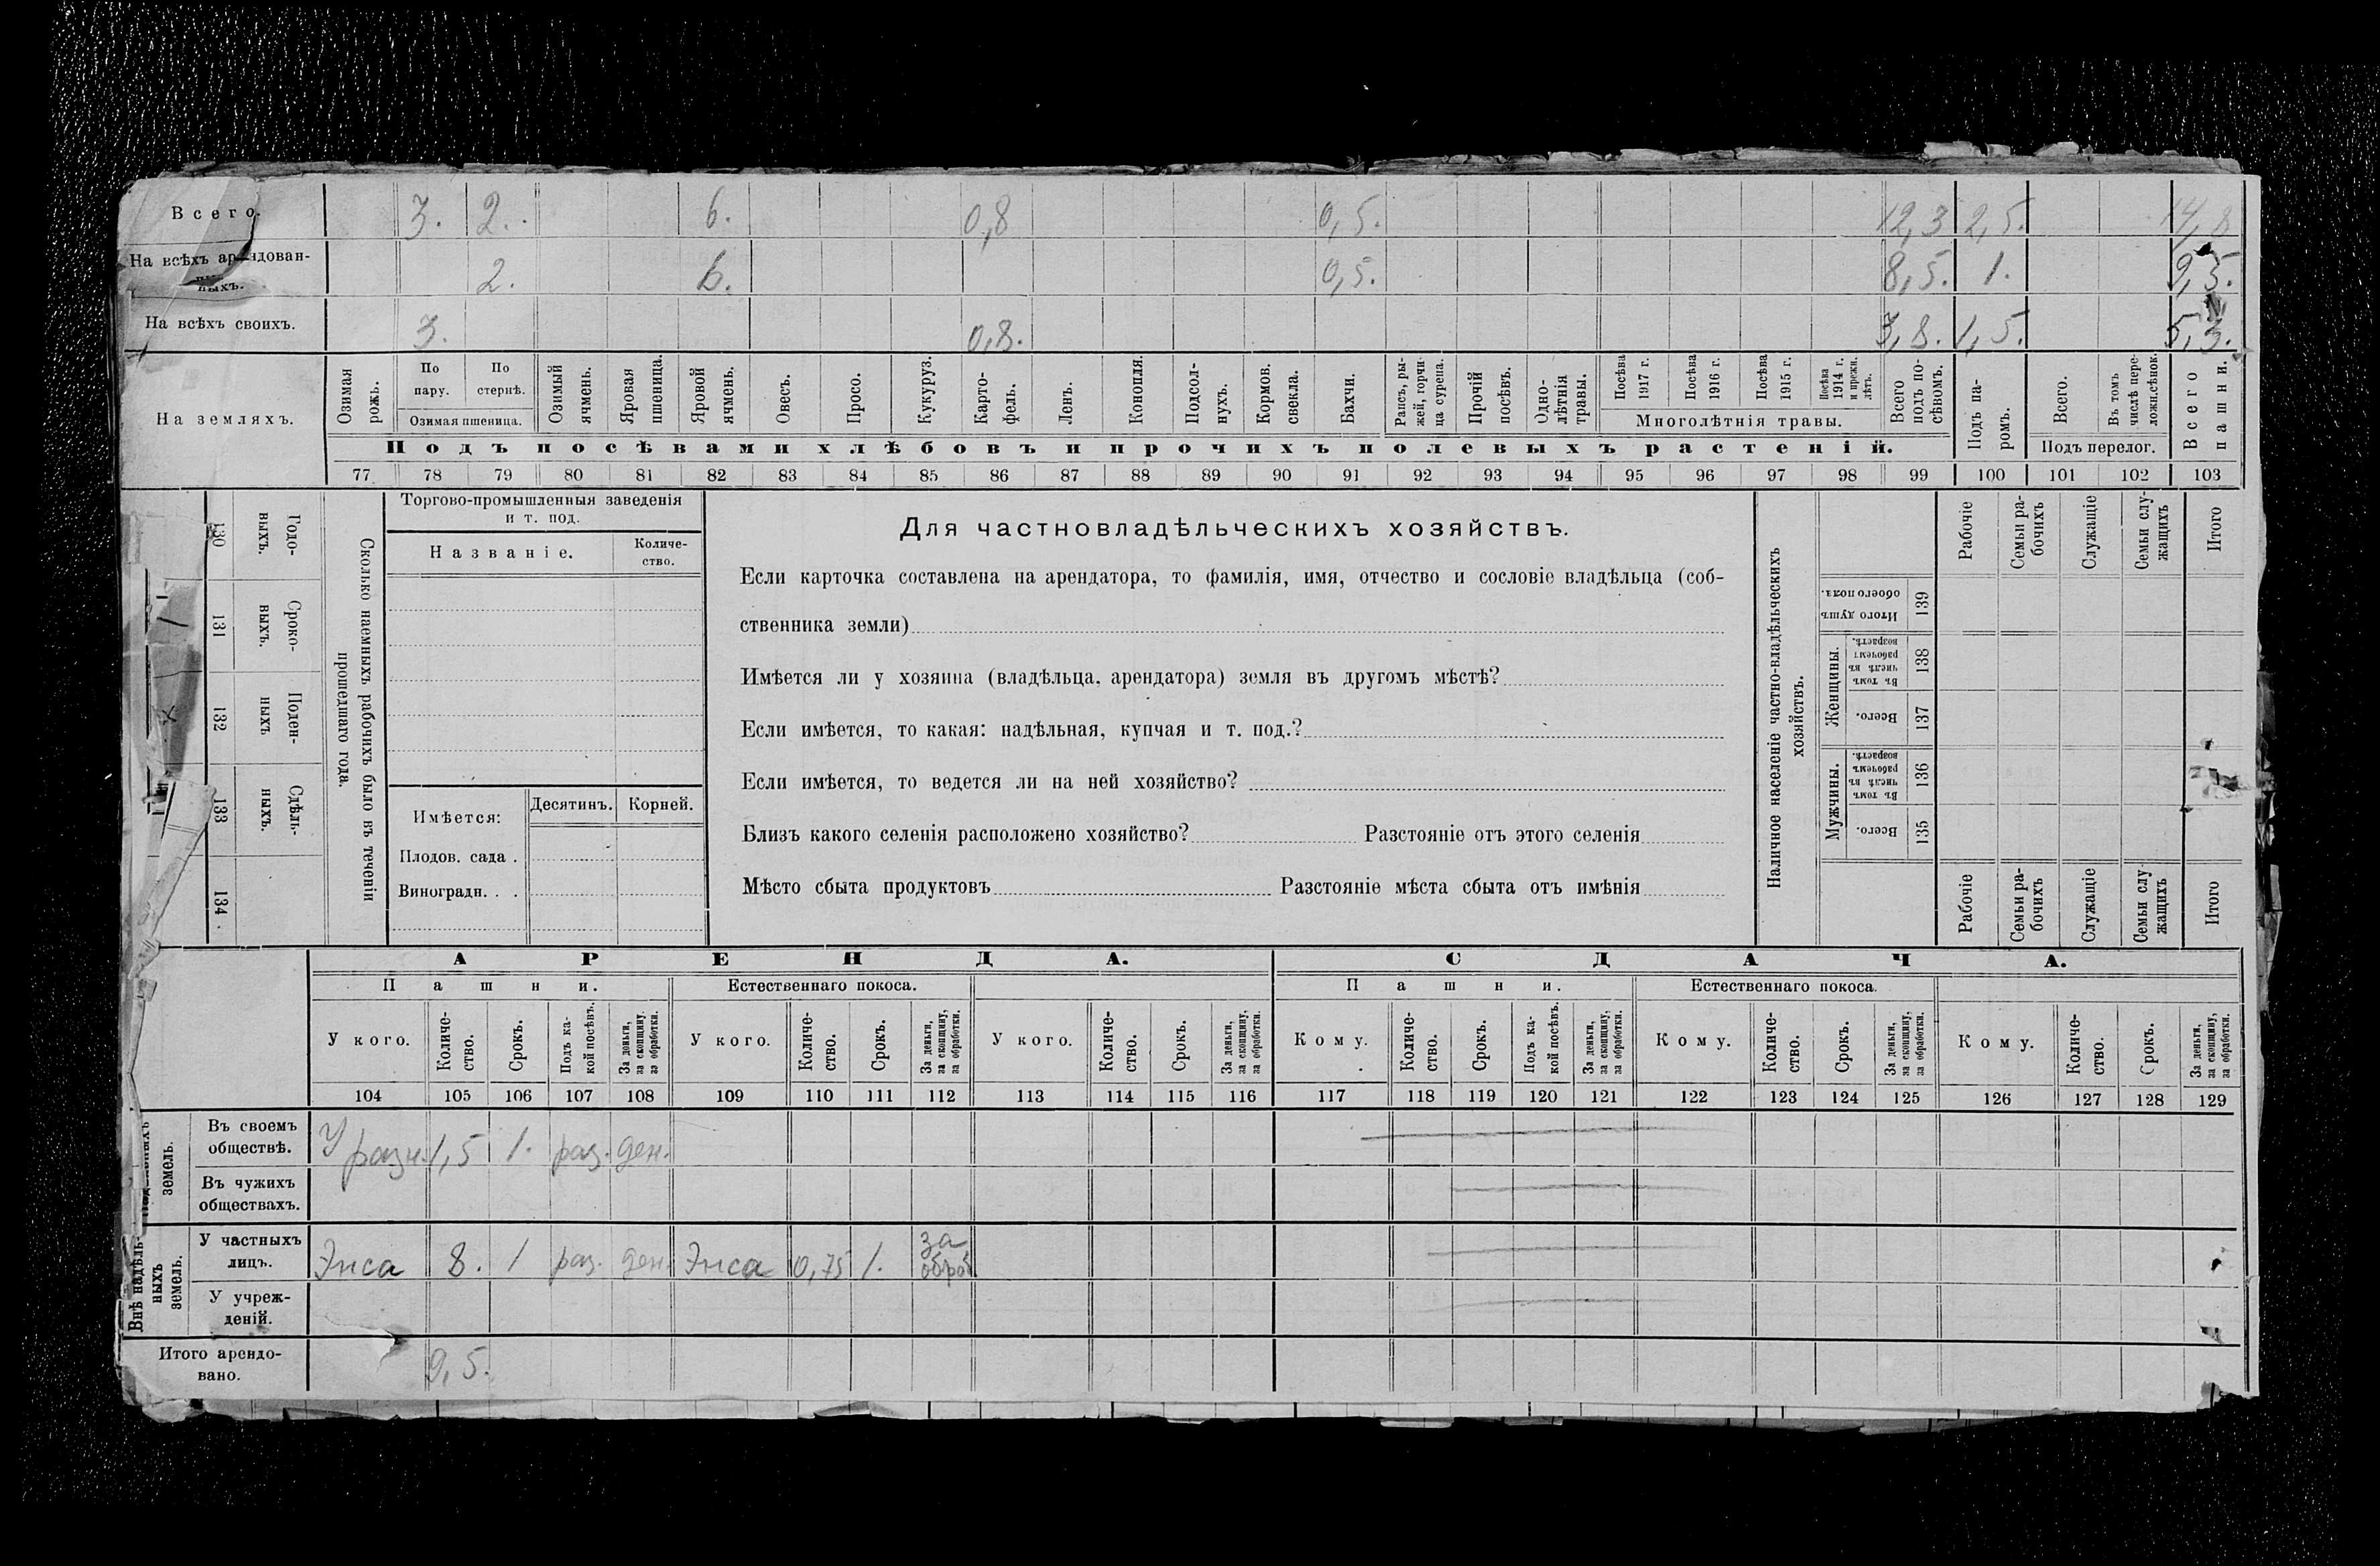 Всего. 3. 2. 6. 0,8 0,5. 12,3 2,5. 14,8
На всѣхъ арендован-
ныхъ. 2. 6. 0,5. 8,5. 1. 9,5.
На всѣхъ своихъ. 3. 0,8. 3,8. 1,5. 5,3.
На земляхъ.
Озимая рожь.
По пару.
По стернѣ.
Озимая пшеница.
Озимый ячмень.
Яровая пшеница.
Яровой ячмень.
Овесъ.
Просо.
Кукуруз.
Карто-
фель.
Ленъ.
Конопля.
Подсол-
нухъ.
Кормов. свекла.
Бахчи.
Рапсъ, ры-
жей, горчи
ца сурепа.
Прочій посѣвъ.
Одно-
лѣтнія
травы.
Посѣва 1917 г.
Посѣва 1916 г.
Посѣва 1915 г.
Посѣва 1914 г. и прежн. лѣтъ.
Многолѣтнія травы.
Всего подъ по-
сѣвомъ.
Подъ па-
ромъ.
Всего.
Въ томъ числѣ пере-
ложн.сѣнок.
Подъ перелог.
Всего пашни.
Подъ посѣвами хлѣбовъ и прочихъ полевыхъ растеній.
77 78 79 80 81 82 83 84 85 86 87 88 89 90 91 92 93 94 95 96 97 98 99 100 101 102 103
Сколько наемныхъ рабочихъ было въ теченіи
прошедшаго года.
Годо-
выхъ.
130
Сроко-
выхъ.
131
Поден-
ныхъ
132
Сдѣль-
ныхъ.
133
134
Торгово-промышленныя заведенія
и т. под.
Названіе.
Количе-
ство.
Имѣется:
Десятинъ. Корней.
Плодов. сада .
Виноградн. . .
Для частновладѣльческихъ хозяйствъ.
Если карточка составлена на арендатора, то фамилія, имя, отчество и сословіе владѣльца (соб-
ственника земли)
Имѣется ли у хозяина (владѣльца, арендатора) земля въ другомъ мѣстѣ?
Если имѣется, то какая: надѣльная, купчая и т. под.?
Если имѣется, то ведется ли на ней хозяйство?
Близъ какого селенія расположено хозяйство? Разстояніе отъ этого селенія
Мѣсто сбыта продуктовъ Разстояніе мѣста сбыта отъ имѣнія
Наличное населеніе частно-владѣльческихъ
хозяйствъ.
Рабочіе
Семьи ра-
бочихъ
Служащіе
Семьи слу-
жащихъ
Итого
Итого душъ обоего пола.
139
Женщины.
Въ томъ числѣ въ рабочемъ возрастѣ.
138
Всего.
137
Мужчины.
Въ томъ числѣ въ рабочемъ возрастѣ.
136
Всего.
135
Рабочіе
Семьи ра-
бочихъ
Служащіе
Семьи слу-
жащихъ
Итого
АРЕНДА. СДАЧА.
Пашни. Естественнаго покоса. Пашни. Естественнаго покоса.
У кого.
Количе-
ство.
Срокъ.
Подъ ка-
кой посѣвъ.
За деньги,
за скопщину,
за обработки.
У кого.
Количе-
ство.
Срокъ.
За деньги,
за скопщину,
за обработки.
У кого.
Количе-
ство.
Срокъ.
За деньги,
за скопщину,
за обработки.
Кому.
Количе-
ство.
Срокъ.
Подъ ка-
кой посѣвъ.
За деньги,
за скопщину,
за обработки.
Кому.
Количе-
ство.
Срокъ.
За деньги,
за скопщину,
за обработки.
Кому.
Количе-
ство.
Срокъ.
За деньги,
за скопщину,
за обработки.
104 105 106 107 108 109 110 111 112 113 114 115 116 117 118 119 120 121 122 123 124 125 126 127 128 129
земель.
Въ своемъ
обществѣ.
У разн. 1,5 1. раз. ден.
Въ чужихъ
обществахъ.
Внѣ надѣль-
ныхъ
земель.
У частныхъ
лицъ.
Энса 8. 1 раз. ден. Энса 0,75 1. за
оброб
У учреж-
деній.
Итого арендо-
вано. 9,5.